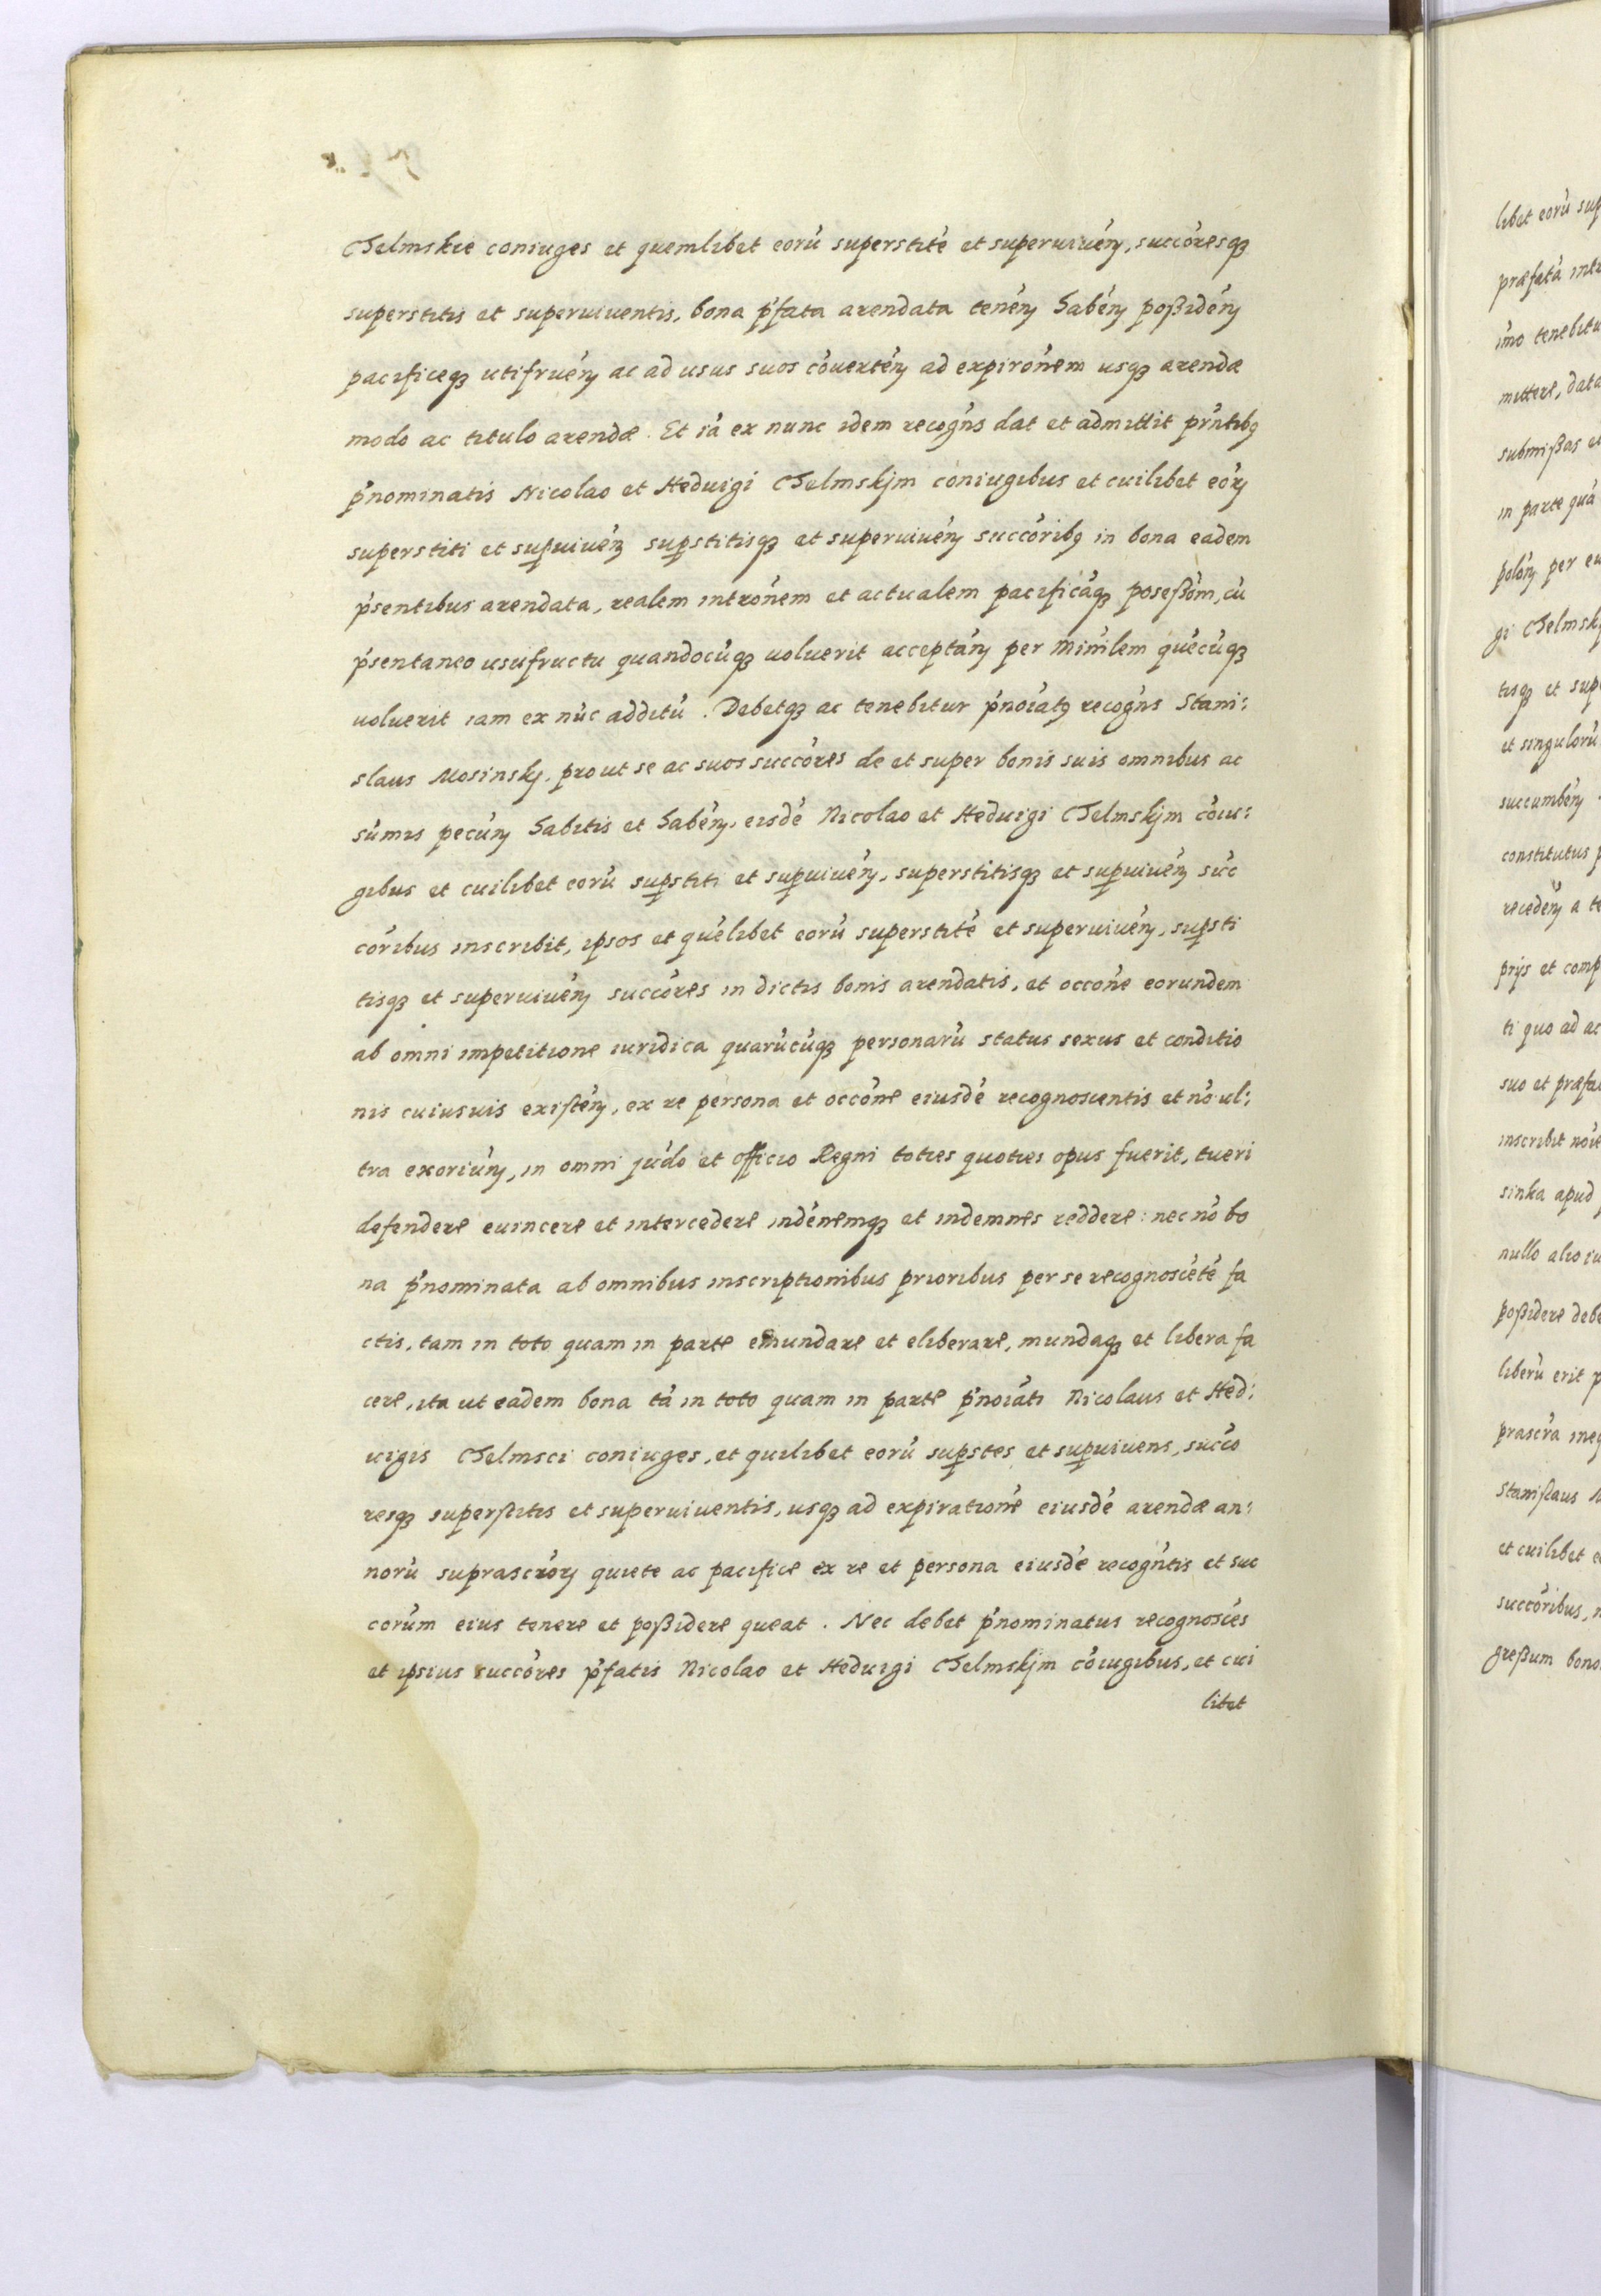 Chelmskie coniuges et quemlibet eorũ superstitẽ et superuiueñ, succ̃oresq̃
superstitis et superuiuentis, bona p̃fata arendata teneñ habeñ poßideñ
pacificeq̃ utifrueñ ac ad usus suos cõuerteñ ad expirõnem usq̃ arendæ
modo ac titulo arendæ. Et iã ex nunc idem recogñs dat et admittit prñtibꝰ
p̃nominatis Nicolao et Heduigi Chelmskjm coniugibus et cuilibet eoꝝ
superstiti et suꝑuiueñ suꝑstitisq̃ et superuiueñ succ̃oribꝰ in bona eadem
p̃sentibus arendata, realem intrõnem et actualem pacificãq̃ poseßõm, cũ
p̃sentaneo usufructu quandocũq̃ uoluerit acceptañ per Minĩlem quẽcũq̃
uoluerit iam ex nũc additũ. Debetq̃ ac tenebitur p̃noiatꝰ recogñs Stani:
slaus Mosinskj. prout se ac suos succ̃ores de et super bonis suis omnibus ac
sũmis pecuñ habitis et habeñ. eisdẽ Nicolao et Heduigi Chelmskjm cõiu:
gibus et cuilibet eorũ suꝑstiti et suꝑuiueñ, superstitisq̃ et suꝑuiueñ suc̃
cõribus inscribit, ipsos et quẽlibet eorũ superstitẽ et superuiueñ, suꝑsti
tisq̃ et superuiueñ succ̃ores in dictis bonis arendatis, et occõne eorundem
ab omni impetitione iuridica quarũcũq̃ personarũ status sexus et conditio
nis cuiusuis existeñ, ex re persona et occõne eiusdẽ recognoscentis et nõ ul:
tra exoriuñ, in omni jud̃o et officio Regni toties quoties opus fuerit, tueri
defendere euincere et intercedere indẽnemq̃ et indemnes reddere: nec nõ bo
na p̃nominata ab omnibus inscriptionibus prioribus per se recognoscẽtẽ fa
ctis, tam in toto quam in parte emundare et eliberare, mundaq̃ et libera fa
cere, ita ut eadem bona tã in toto quam in parte p̃noiati Nicolaus et Hed:
uigis Chelmsci coniuges, et quilibet eorũ suꝑstes et suꝑuiuens, succ̃o
resq̃ superstitis et superuiuentis, usq̃ ad expirationẽ eiusdẽ arendæ an:
norũ suprascr̃oꝝ quiete ac pacifice ex re et persona eiusdẽ recogñtis et suc
corũm eius tenere et poßidere queat. Nec debet p̃nominatus recognoscẽs
et ipsius succ̃ores p̃fatis Nicolao et Heduigi Chelmskjm cõiugibus, et cui
libet
libet eorũ sup
præfatã
tenebitu
mittere, data
submißas
in parte quã
per eu
gi Chelmsk
tisq̃ et sup
et singulorũ
succumbeñ
constitutus
recedeñ a
prijs et comp
ti quo ad ac
suo et præfa
inscribit
sinka apud
nullo alio
poßidere debe
liberũ erit
Stanislaus
et cuilibet
succ̃oribus,
greßum bono